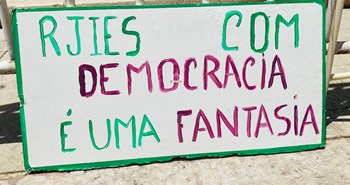 RJIES COM
DEMOCRACIA
É UMA FANTASIA